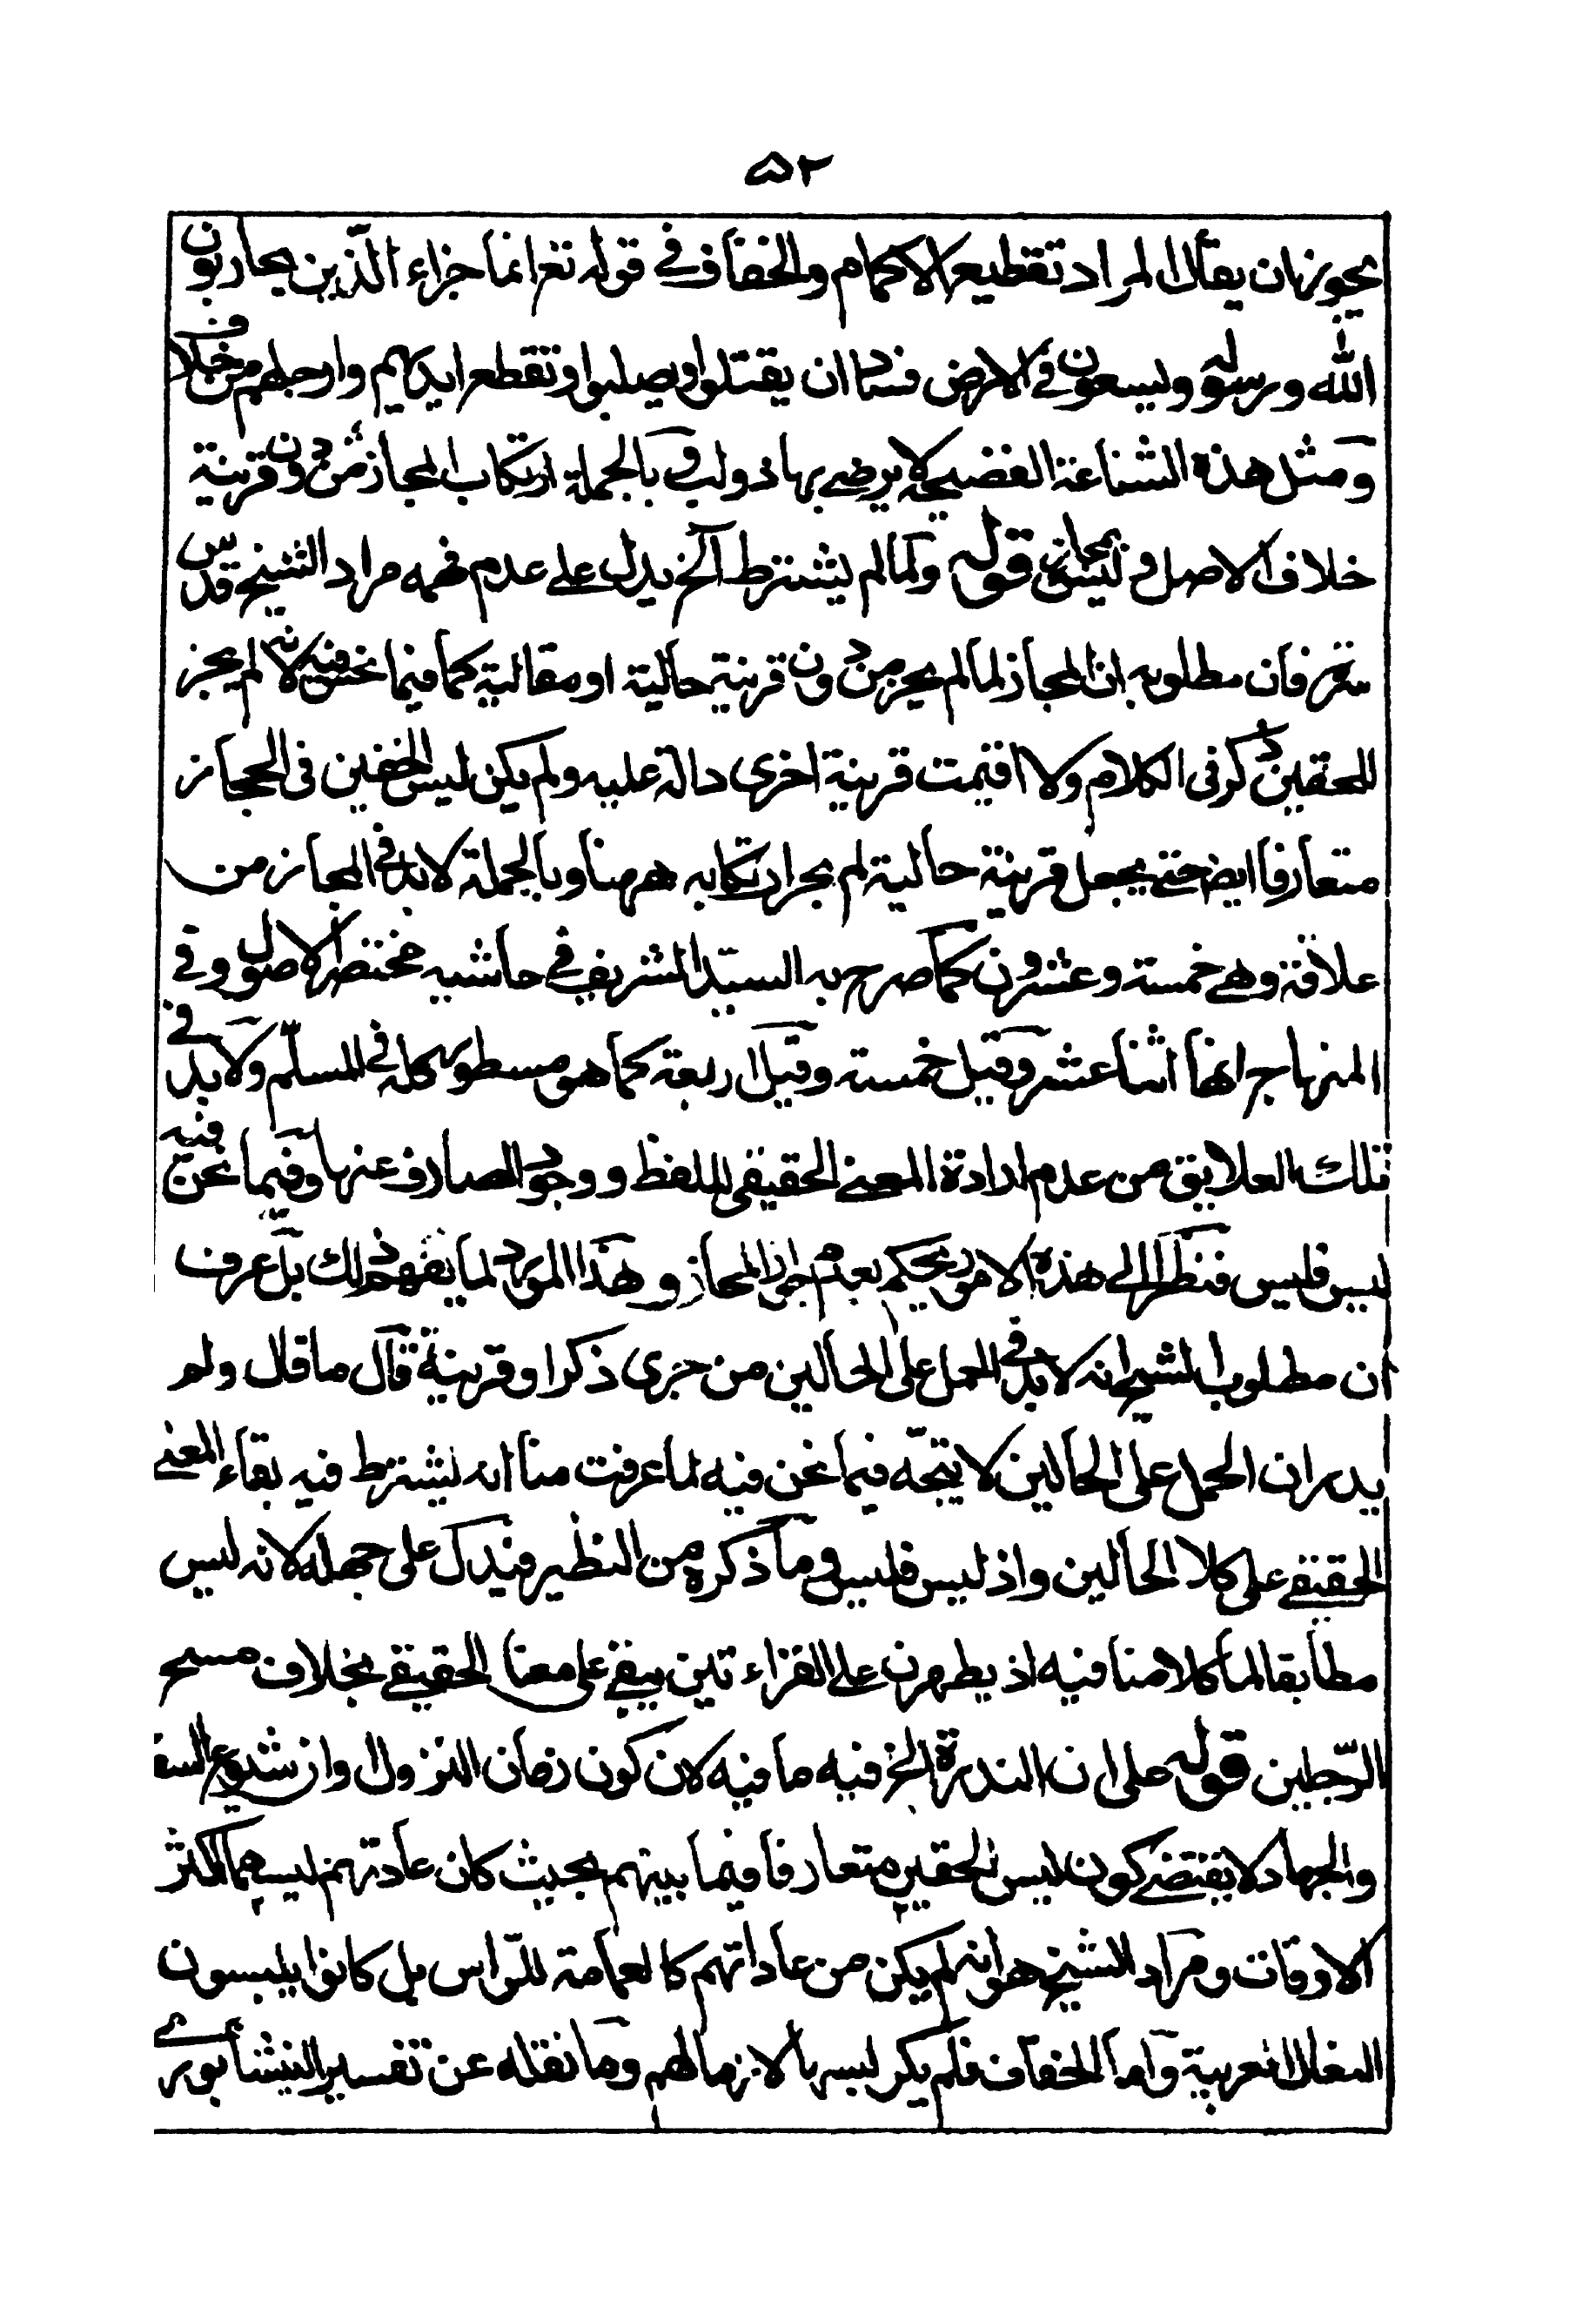 ۵۲
يجوز ان يقال المراد تقطيع الاكمام والخفاف في قوله تعم انما جزاء الذين يحاربون
الله ورسوله ويسعون في الارض فسادا ان يقتلوا او يصلبوا او تقطع ايديهم وارجلهم من خلاف
ومثل هذه الشناعة الفضيحة لا يرضى بها ذو لب وبالجملة ارتكاب المجاز من دون قرينة
خلاف الاصل و ليس بجائز قوله ولما لم يشترط الخ يدل على عدم فهمه مراد الشيخ قدس
سره فان مطلوبه ان المجاز لما لم يجز من دون قرينة حالية او مقالية كما فيما نحن فيه لانه لم يجز
للخفين ذكر في الكلام ولا اقيمت قرينة اخرى دالة عليه ولم يكن لبس الخفين في الحجاز
متعارفا ايض حتى يجعل قرينة حالية لم يجز ارتكابه ههنا وبالجملة لا بد في المجاز من
علاقة وهي خمسة وعشرون كما صرح به السيد الشريف في حاشيه مختصر الاصول وفي
المنهاج انها اثنا عشر وقيل خمسة وقيل اربعة كما هو مسطور كله في المسلم ولا بد في
تلك العلايق من عدم ارادة المعنى الحقيقي للفظ ووجود الصارف عنها وفيما نحن فيه
ليس فليس فنظرا الى هذه الامور يحكم بعدم اجراء المجاز وهذا المورد لما يفهم ذلك بل عرف
ان مطلوب الشيخ انه لا بد في الحمل على الحالين من جرى ذكر او قرينة قال ما قال ولم
يدر ان الحمل على الحالين لا يتجه فيما نحن فيه لما عرفت منا انه يشترط فيه بقاء المعنى
الحقيقي على كلا الحالين واذ ليس فليس وما ذكره من النظير فيدل على جهله لانه ليس
مطابقا لما كلامنا فيه اذ يطهرن على القراءتين يبقى على معنا الحقيقي بخلاف مسح
الرجلين قوله على ان الندرة الخ فيه ما فيه لان كون زمان النزول اوان شيوع السفر
والجهاد لا يقتضى كون لبس الخفين متعارفا فيما بينهم بحيث كان عادتهم لبسهما اكثر
الاوقات ومراد الشيخ هو انه لم يكن من عاداتهم كالعمامة للرأس بل كانوا يلبسون
النعال العربية واما الخفاف فلم يكن لبسها لازما لهم وما نقله عن تفسير النيشابوري